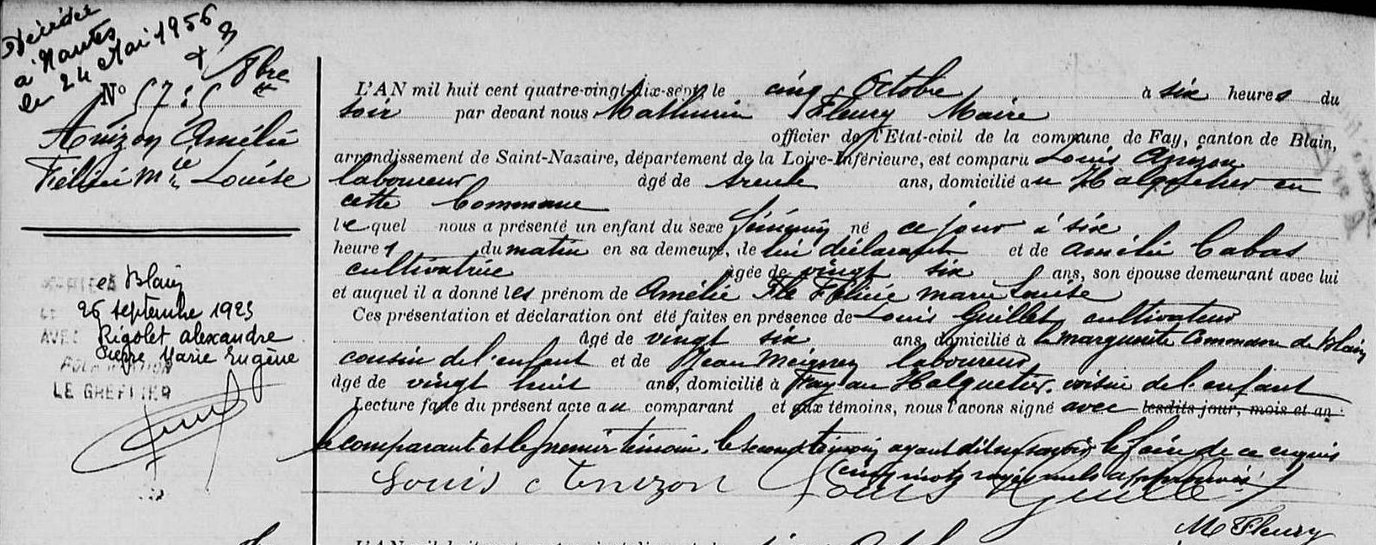 Décédée
à Nantes
le 24 Mai 1956
8bre
No 57
Anizon Amélie
Félicie Mie Louise
MARIÉE
à Blain
LE 26 septembre 1925
AVEC Rigolet alexandre
Pierre Marie Eugène
LE GREFFIER
L'AN mil huit cent quatre-vingt-dix-sept le cinq Octobre à six heures du
soir par devant nous Mathurin Fleury Maire
officier de l'Etat-civil de la commune de Fay, canton de Blain,
arrondissement de Saint-Nazaire, département de la Loire-Inférieure, est comparu Louis Anizon
laboureur âgé de trente ans, domicilié au Halquetier en
cette Commune
lequel nous a présenté un enfant du sexe féminin né ce jour à six
heures du matin en sa demeure, de lui déclarant et de Amélie Cabas
cultivatrice âgée de vingt six ans, son épouse demeurant avec lui
et auquel il a donné les prénom de Amélie Félicie marie Louise
Ces présentation et déclaration ont été faites en présence de Louis Guillet cultivateur
âgé de vingt six ans, domicilié à la marguerite Commune de Blain
cousin de l'enfant et de Jean Meignen laboureur
âgé de vingt huit ans, domicilié à Fay au Halquetier, voisin de l'enfant
Lecture faite du présent acte au comparant et aux témoins, nous l'avons signé avec lesdits jour, mois et an.
le comparant et le premier témoin, le second témoin ayant dit ne savoir le faire de ce requis
cinq mots rayés nuls approuvés.
Louis Anizon Louis Guillet
M Fleury